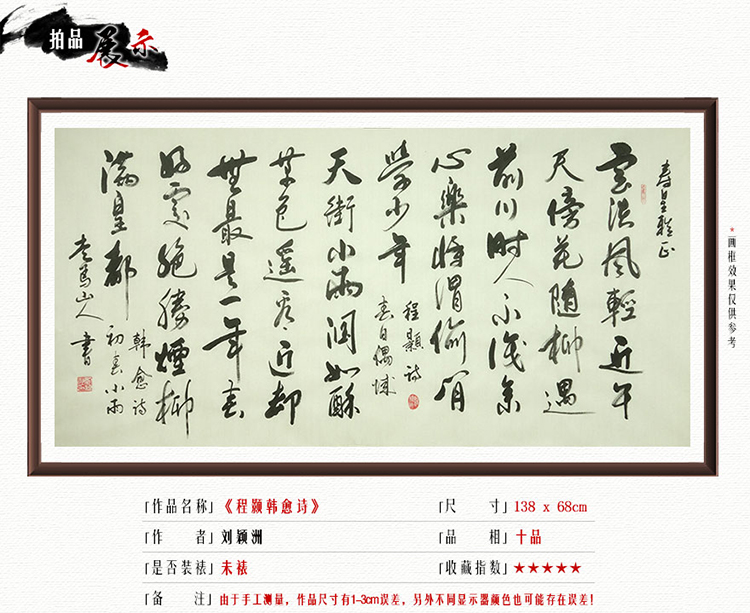 拍品展示
雅正
雲淡風輕近午
天傍花隨柳過
前川時人不識余
心樂將謂偷閒
學少年
程顥詩
春日偶成
天街小雨潤如酥
草色遙看近却
無最是一年春
好處絕勝煙柳
滿皇都
韓愈詩
初春小雨
山人書
★画框效果仅供参考
「作品名称」《程颢韩愈诗》
「尺 寸」138 x 68cm
「作 者」刘颖洲
「品 相」十品
「是否装裱」未裱
「收藏指数」★★★★★
「备 注」由于手工测量，作品尺寸有1-3cm误差，另外不同显示器颜色也可能存在误差!